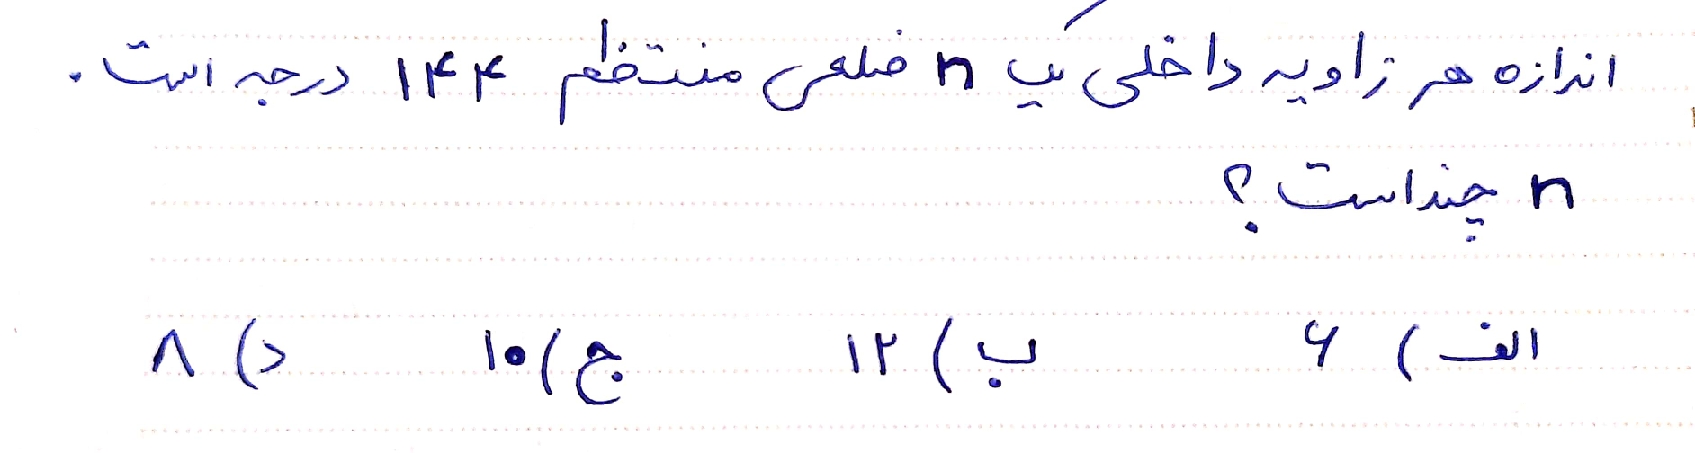 اندازه هر زاویه داخلی یک n ضلعی منتظم ۱۴۴ درجه است.
n چند است؟
الف) ۶ ب) ۱۲ ج) ۱۰ د) ۸